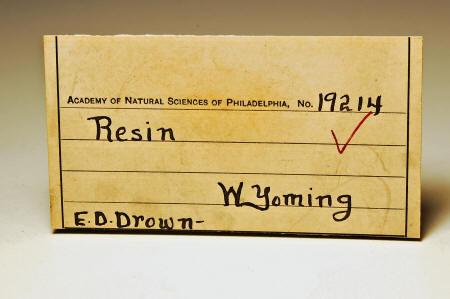 ACADEMY OF NATURAL SCIENCES OF PHILADELPHIA, No. 19214
Resin
Wyoming
E.D.Drown-